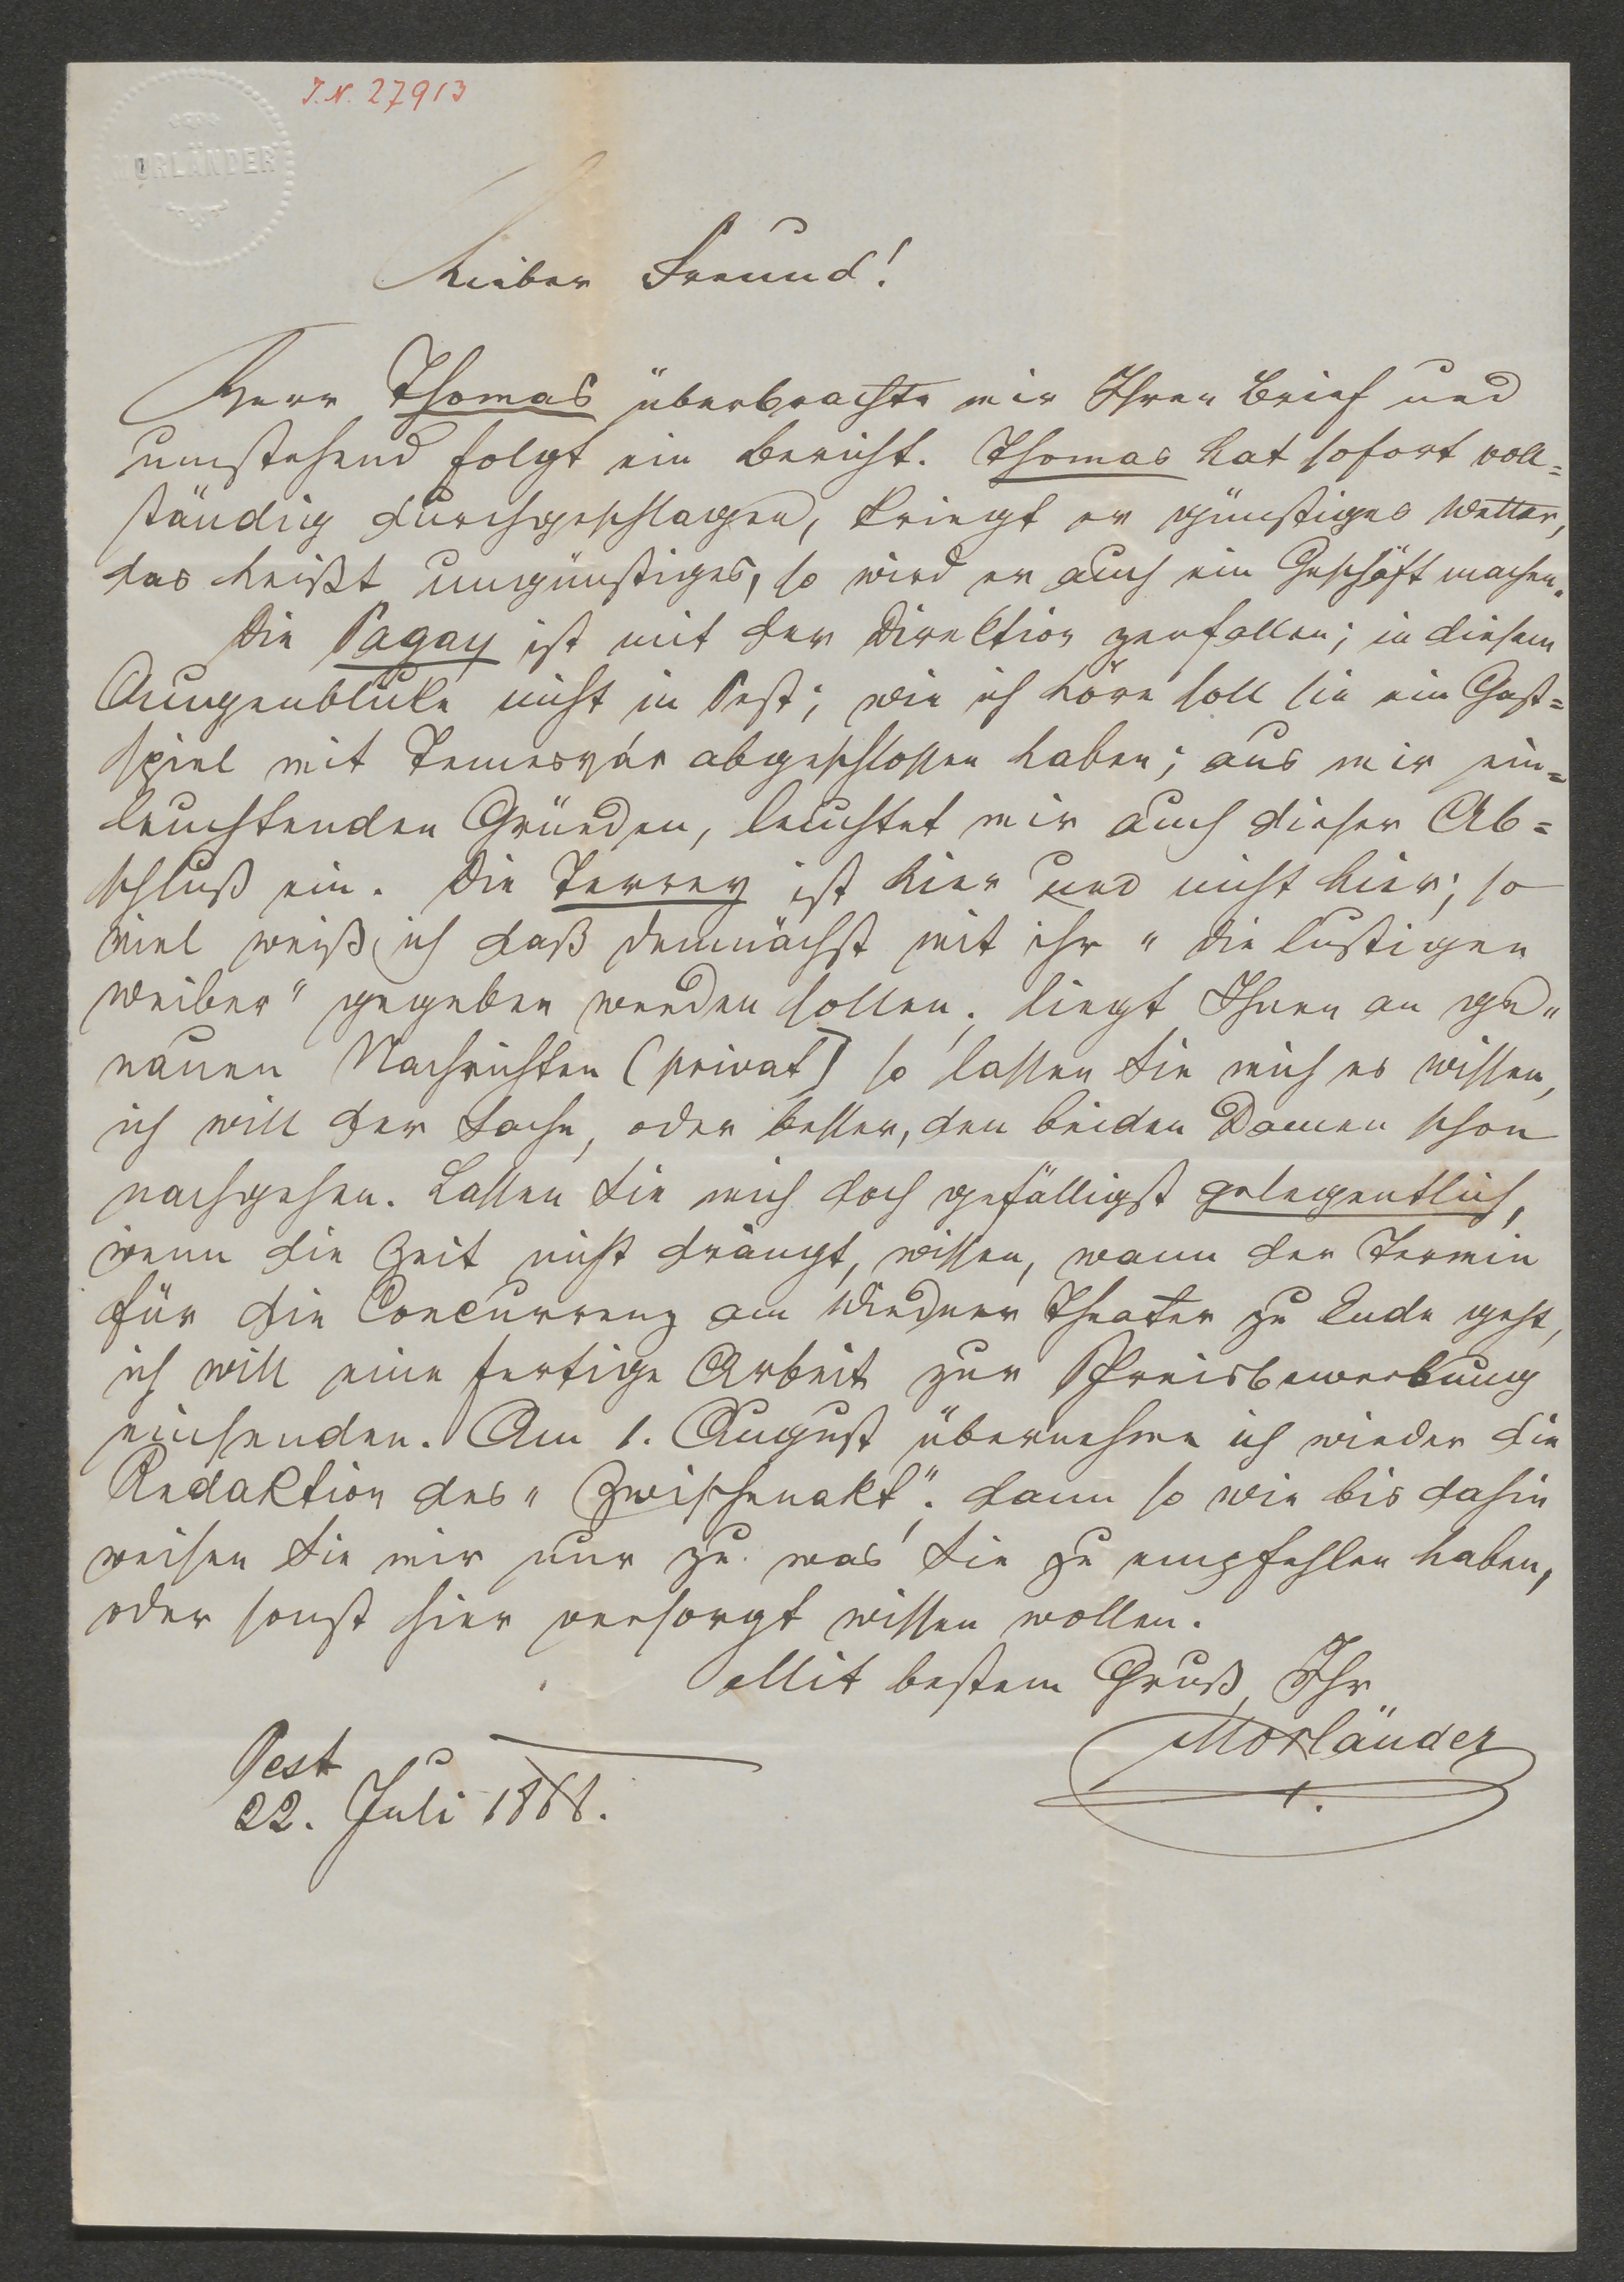 J.N. 27913
MORLÄNDER
Lieber Freund!
Herr Thomas überbrachte mir Ihren Brief und
umstehend folgt ein Bericht. Thomas hat sofort voll=
ständig durchgeschlagen, kriegt er günstiges Wetter,
das heißt ungünstiges, so wird er auch ein Geschäft machen.
Die Pagay ist mit der Direktion zerfallen; in diesem
Augenblicke nicht in Pest; wie ich höre soll sie ein Gast=
spiel mit Temesvár abgeschlossen haben; aus mir ein=
leuchtenden Gründen, leuchtet mir auch dieser Ab=
schluß ein. Die Terrey ist hier und nicht hier; so
viel weiß ich daß demnächst mit ihr "die lustigen
Weiber" gegeben werden sollen. Liegt Ihnen an ge"
nauen Nachrichten (privat) so lassen Sie mich es wissen,
ich will der Sache, oder besser, den beiden Damen schon
nachgehen. Lassen Sie mich doch gefälligst gelegentlich,
wenn die Zeit nicht drängt, wissen, wann der Termin
für die Concurrenz am Wiedner Theater zu Ende geht,
ich will eine fertige Arbeit zur Preisbewerbung
einsenden. Am 1. August übernehme ich wieder die
Redaktion des "Zwischenakt". dann so wie bis dahin
weisen Sie mir nur zu was Sie zu empfehlen haben,
oder sonst hier versorgt wissen wollen.
Mit bestem Gruß, Ihr
Morländer
Pest
22. Juli 1868.